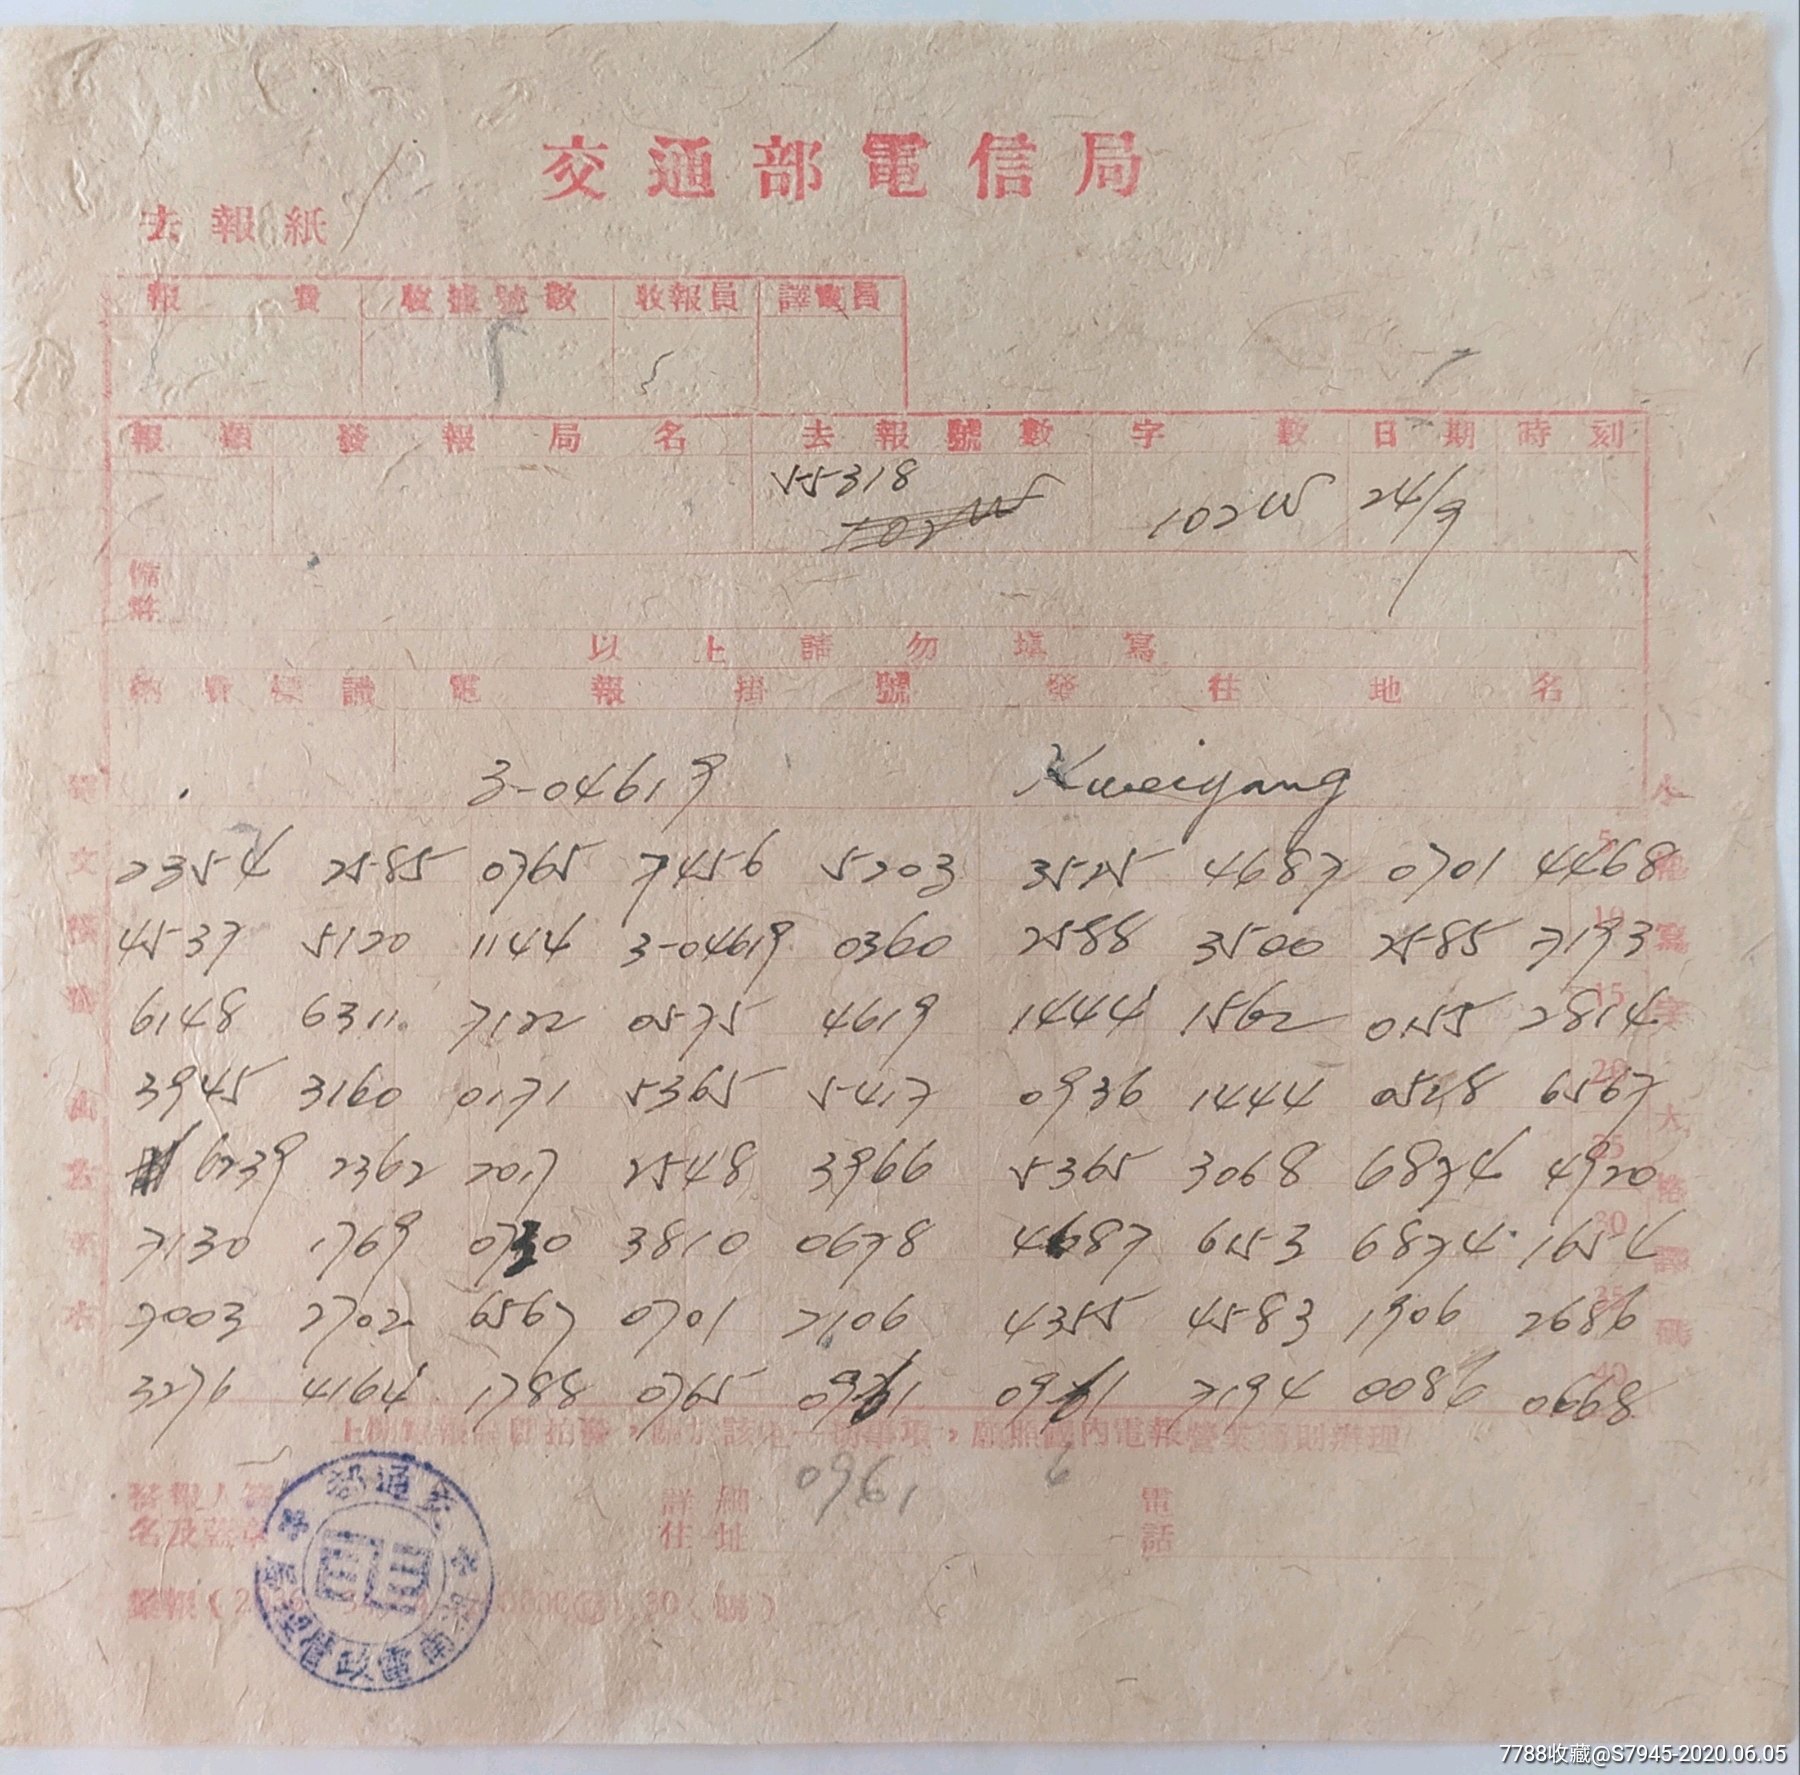 交通部電信局
去報紙
報費 收據號數 收報員 譯電員
報類 發報局名 去報號數 字數 日期 時刻
55318 102W 24/9
102W
備註
以上請勿填寫
納費標識 電報掛號 發往地名
3-04619 Kweiyang
2354 2585 0765 7456 5203 3525 4687 0701 4468
4537 5120 1144 3-04619 0360 2588 3500 2585 7193
6148 6311 7122 0575 4619 1444 1562 0155 2814
3945 3160 0171 5365 5417 0936 1444 0528 6567
6239 2362 2017 2548 3966 5365 3068 6874 4920
7130 1769 0730 3810 0678 4687 6153 6874 1654
7003 2702 6567 0701 7106 4355 4583 1906 2686
3276 4164 1788 0765 0961 0961 7194 0086 0668
5
10
15
20
25
30
35
40
國內電報營業通則辦理
0961 6
發報人簽名及蓋章 詳細住址 電話
7788收藏@S7945-2020.06.05